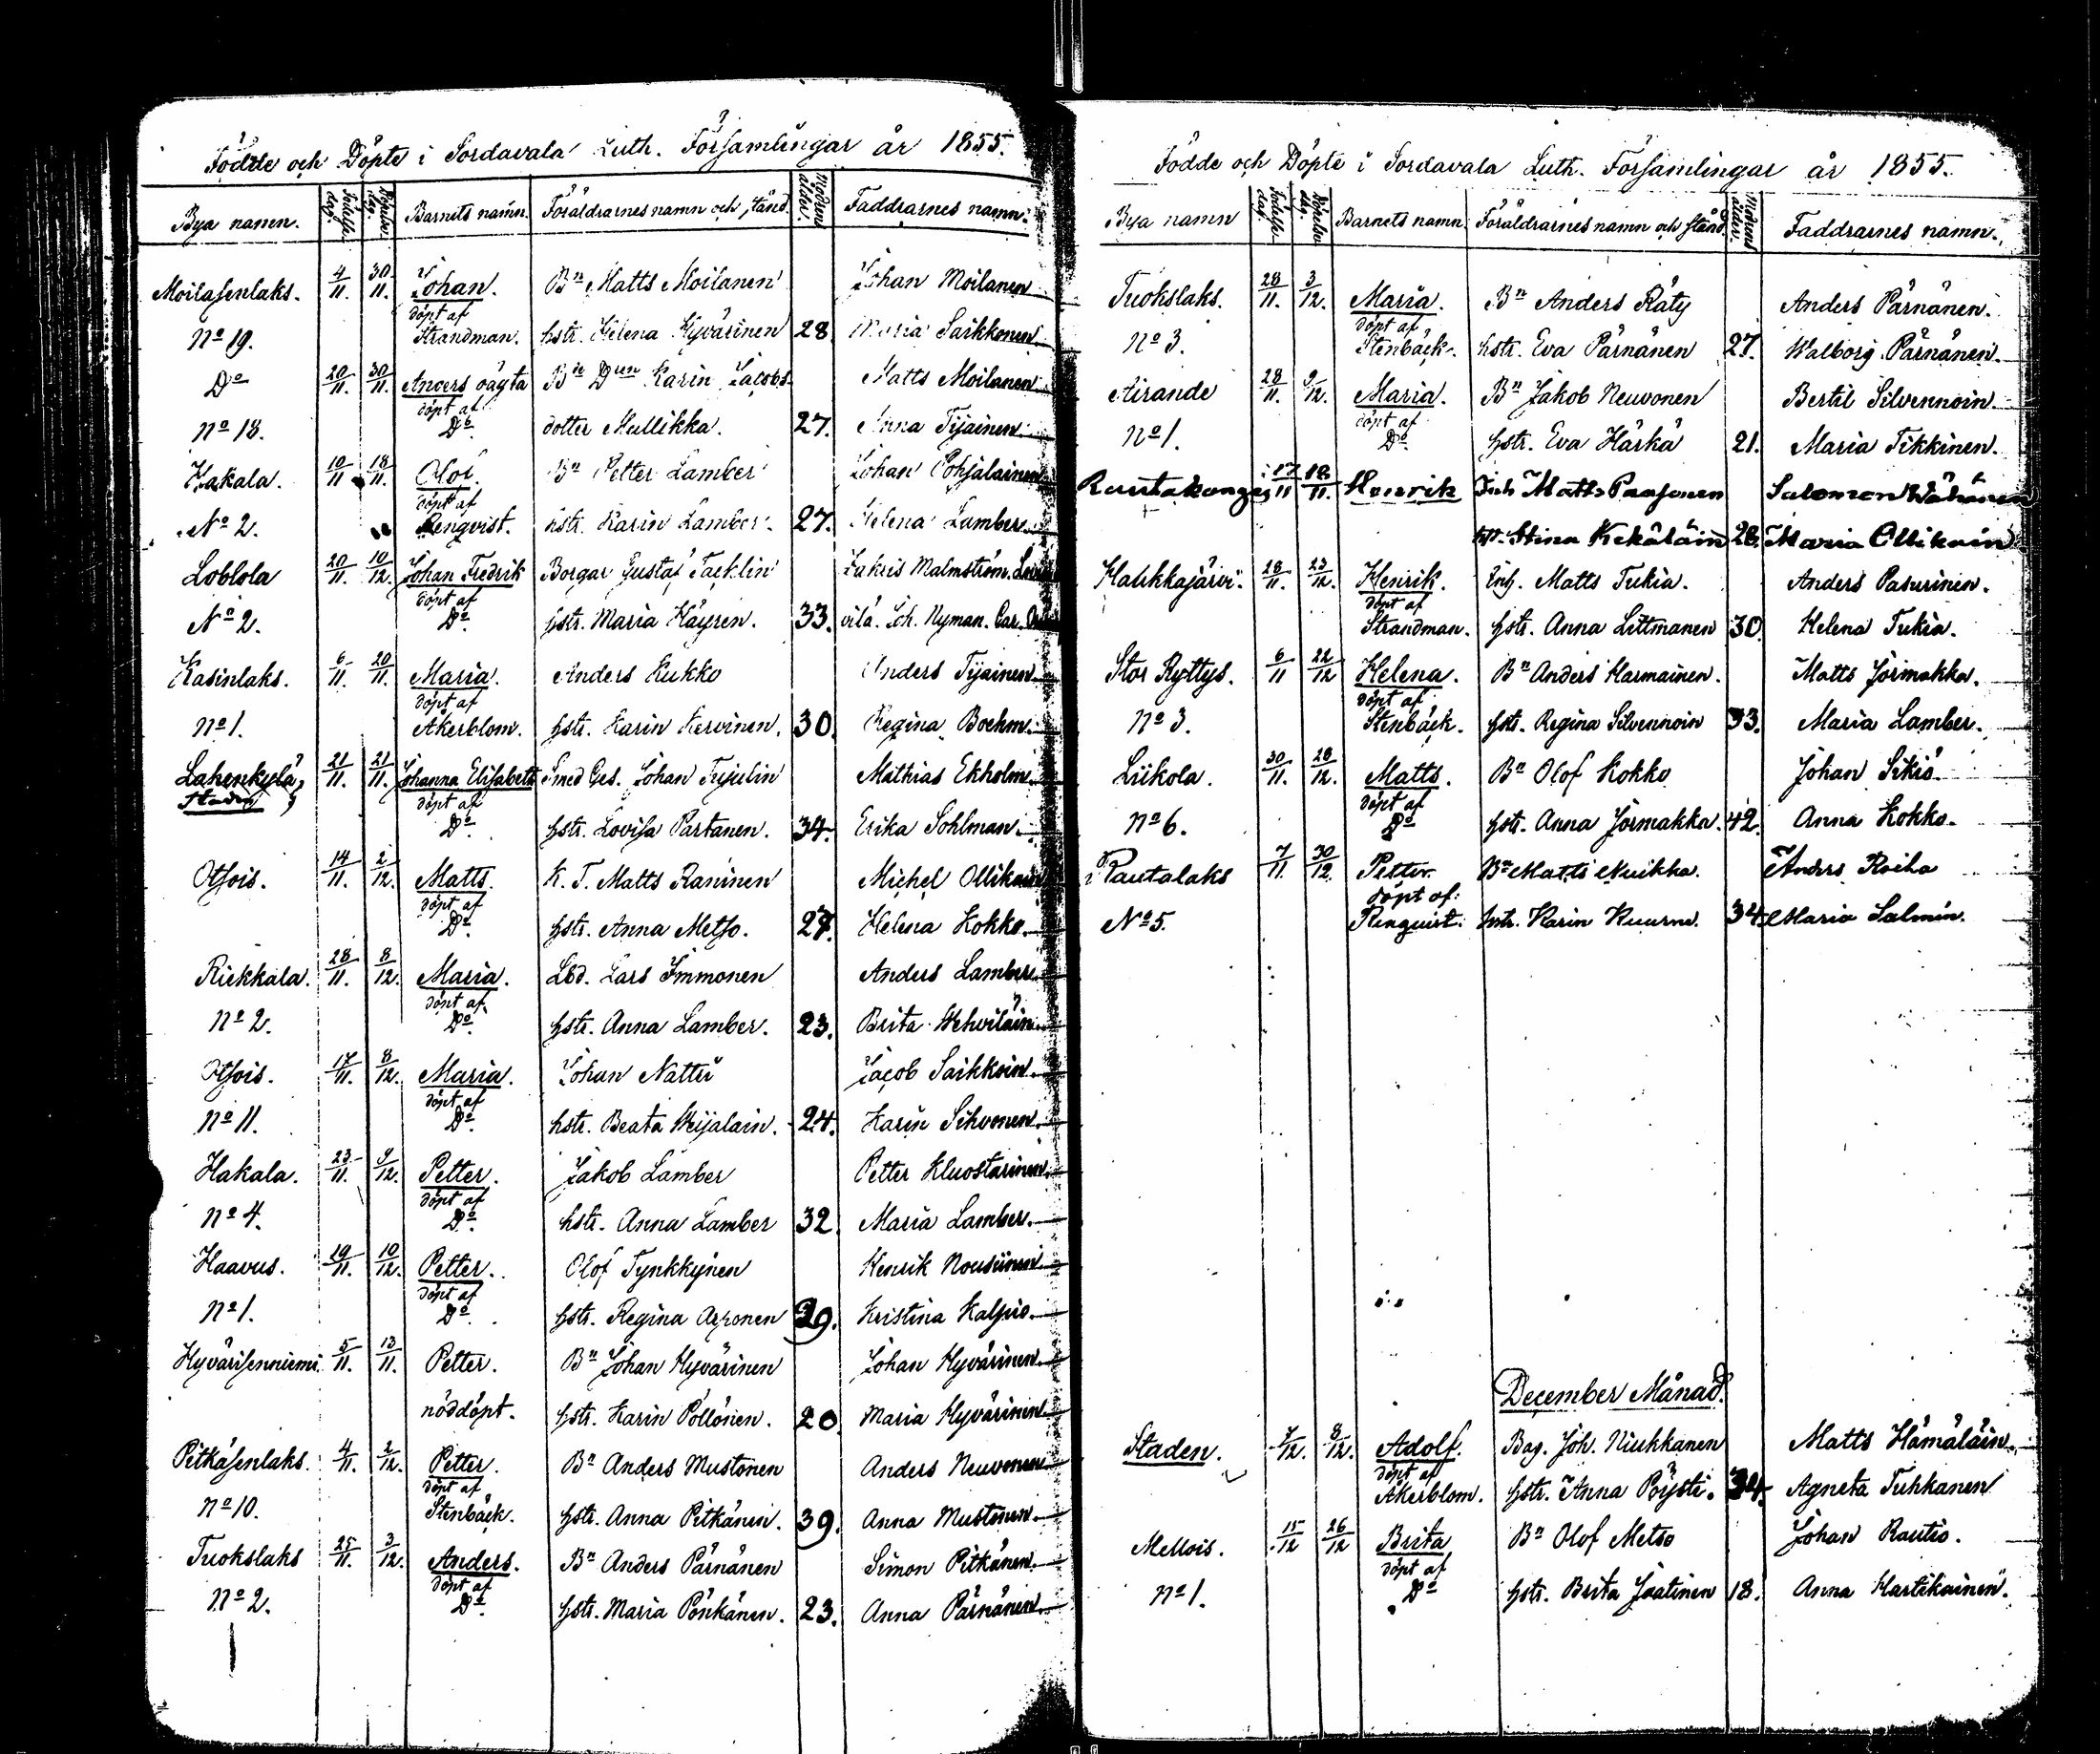 Födde och Döpte i Sordavala Luth. Församlingar år 1855.
Bya namn. Födelse dag. Döpelse dag. Barnets namn. Föräldrarnes namn och stånd. Modrens ålder. Faddrarnes namn.
Moilasenlaks. 4/11. 30/11. Johan. Bn Matts Moilanen Johan Moilanen
döpt af
No 19. Strandman. hstr. Helena Hyvärinen 28 Maria Saikkonen
Do 20/11. 30/11. Anders oägta Bn Dun Karin Jacobs Matts Moilanen
döpt af
No 18. Do. dotter Mullikka. 27. Anna Tijainen.
Hakala. 10/11 18/11. Olof. Bn Petter Lamber Johan Pohjalainen
döpt af
No 2. Renqvist. hstr. Karin Lamber. 27. Helena Lamber.
Loblola 20/11. 10/12. Johan Fredrik Borgar Gustaf Tacklin Zakris Malmström.
döpt af
No 2. Do. hstr. Maria Häyren. 33. Joh. Nyman.
Kasinlaks. 6/11. 20/11. Maria. Anders Kukko Anders Tijainen
döpt af
No 1. Åkerblom. hstr. Karin Kervinen. 30. Regina Boehm.
Lahenkylä, 21/11. 21/11. Johanna Elisabeth Smed Ges. Johan Trijulin Mathias Ekholm
Staden döpt af
Do. hstr. Lovisa Partanen. 34. Erika Sohlman.
Otsois. 14/11. 2/12. Matts. K. T. Matts Raninen Michel Ollikain
döpt af
Do. hstr. Anna Metso. 27. Helena Kokko.
Riekkala. 28/11. 8/12. Maria. Lbd. Lars Immonen Anders Lamber
döpt af
No 2. Do. hstr. Anna Lamber. 23. Brita Wehviläin
Otsois. 17/11. 8/12. Maria. Johan Natter Jacob Saikkoin
döpt af
No 11. Do. hstr. Beata Weijalain. 24. Karin Sihvonen.
Hakala. 23/11. 9/12. Petter. Jakob Lamber Petter Kluostarinen.
döpt af
No 4. Do. hstr. Anna Lamber 32. Maria Lamber.
Haavus. 19/11. 10/12. Petter. Olof Tynkkynen Henrik Nousiinen
döpt af
No 1. Do. hstr. Regina Arponen 29. Kristina Kalpio.
Hyvärisenniemi 5/11. 13/11. Petter. Bn Johan Hyvärinen Johan Hyvärinen
nöddöpt. hstr. Karin Pöllönen. 20. Maria Hyvärinen
Pitkäsenlaks. 4/11. 2/12. Petter. Bn Anders Mustonen Anders Neuvonen
döpt af
No 10. Stenbäck. hstr. Anna Pitkänen. 39. Anna Mustonen.
Tuokslaks 25/11. 3/12. Anders. Bn Anders Pärnänen Simon Pitkänen.
döpt af
No 2. Do. hstr. Maria Pönkänen. 23. Anna Pärnänen.
Födde och Döpte i Sordavala Luth. Församlingar år 1855.
Bya namn Födelse dag. Döpelse dag. Barnets namn. Föräldrarnes namn och stånd. Modrens ålder. Faddrarnes namn.
Tuokslaks. 28/11. 3/12. Maria. Bn Anders Räty Anders Pärnänen.
döpt af
No 3. Stenbäck. hstr. Eva Pärnänen 27. Walborg Pärnänen.
Airande 28/11. 9/12. Maria. Bn Jakob Neuvonen Bertil Silvennoin.
döpt af
No 1. Do. hstr. Eva Härkä 21. Maria Tikkinen.
Rautakangas 17/11 18/11. Henrik Inh Matts Paasonen Salomon Wäkänen
hstr. Stina Kekäläin 28. Maria Ollikain
Halikkajärvi. 28/11. 23/12. Henrik. Inh. Matts Tukia. Anders Pasurinen.
döpt af
Strandman. hstr. Anna Littmanen 30. Helena Tukia.
Stor Ryttys. 6/11 22/12 Helena. Bn Anders Harmainen. Matts Jörmakka.
döpt af
No 3. Stenbäck. hstr. Regina Silvennoin 33. Maria Lamber.
Liikola. 30/11. 28/12. Matts. Bn Olof Kokko Johan Sikiö.
döpt af
No 6. Do hstr. Anna Jörmakka. 42. Anna Kokko.
Rautalaks 7/11. 30/12. Petter. Bn Matts Nuikka. Anders Roiha
döpt af:
No 5. Renquist. hstr. Karin Kuurne. 34. Maria Salmin.
December Månad.
Staden. 7/12. 8/12. Adolf. Bag. Joh. Niukkanen Matts Hämäläin.
döpt af
Åkerblom. hstr. Anna Pöysti. 34. Agneta Tuhkanen
Mellois. 15/12 26/12 Brita Bn Olof Metso Johan Rautio.
döpt af
No 1. Do hstr. Brita Jaatinen 18. Anna Hartikainen.